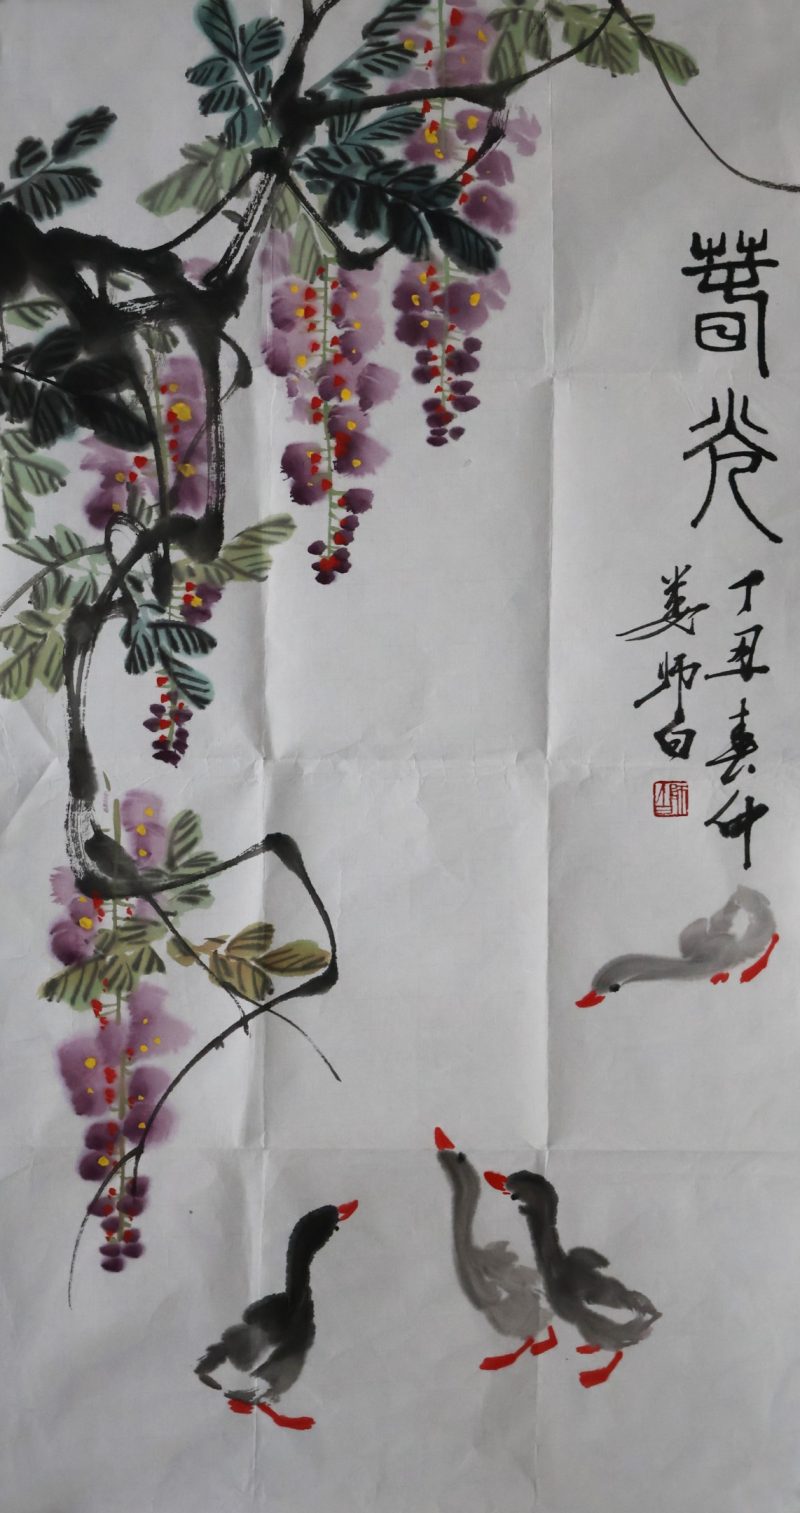 春光
丁丑春仲
娄师白